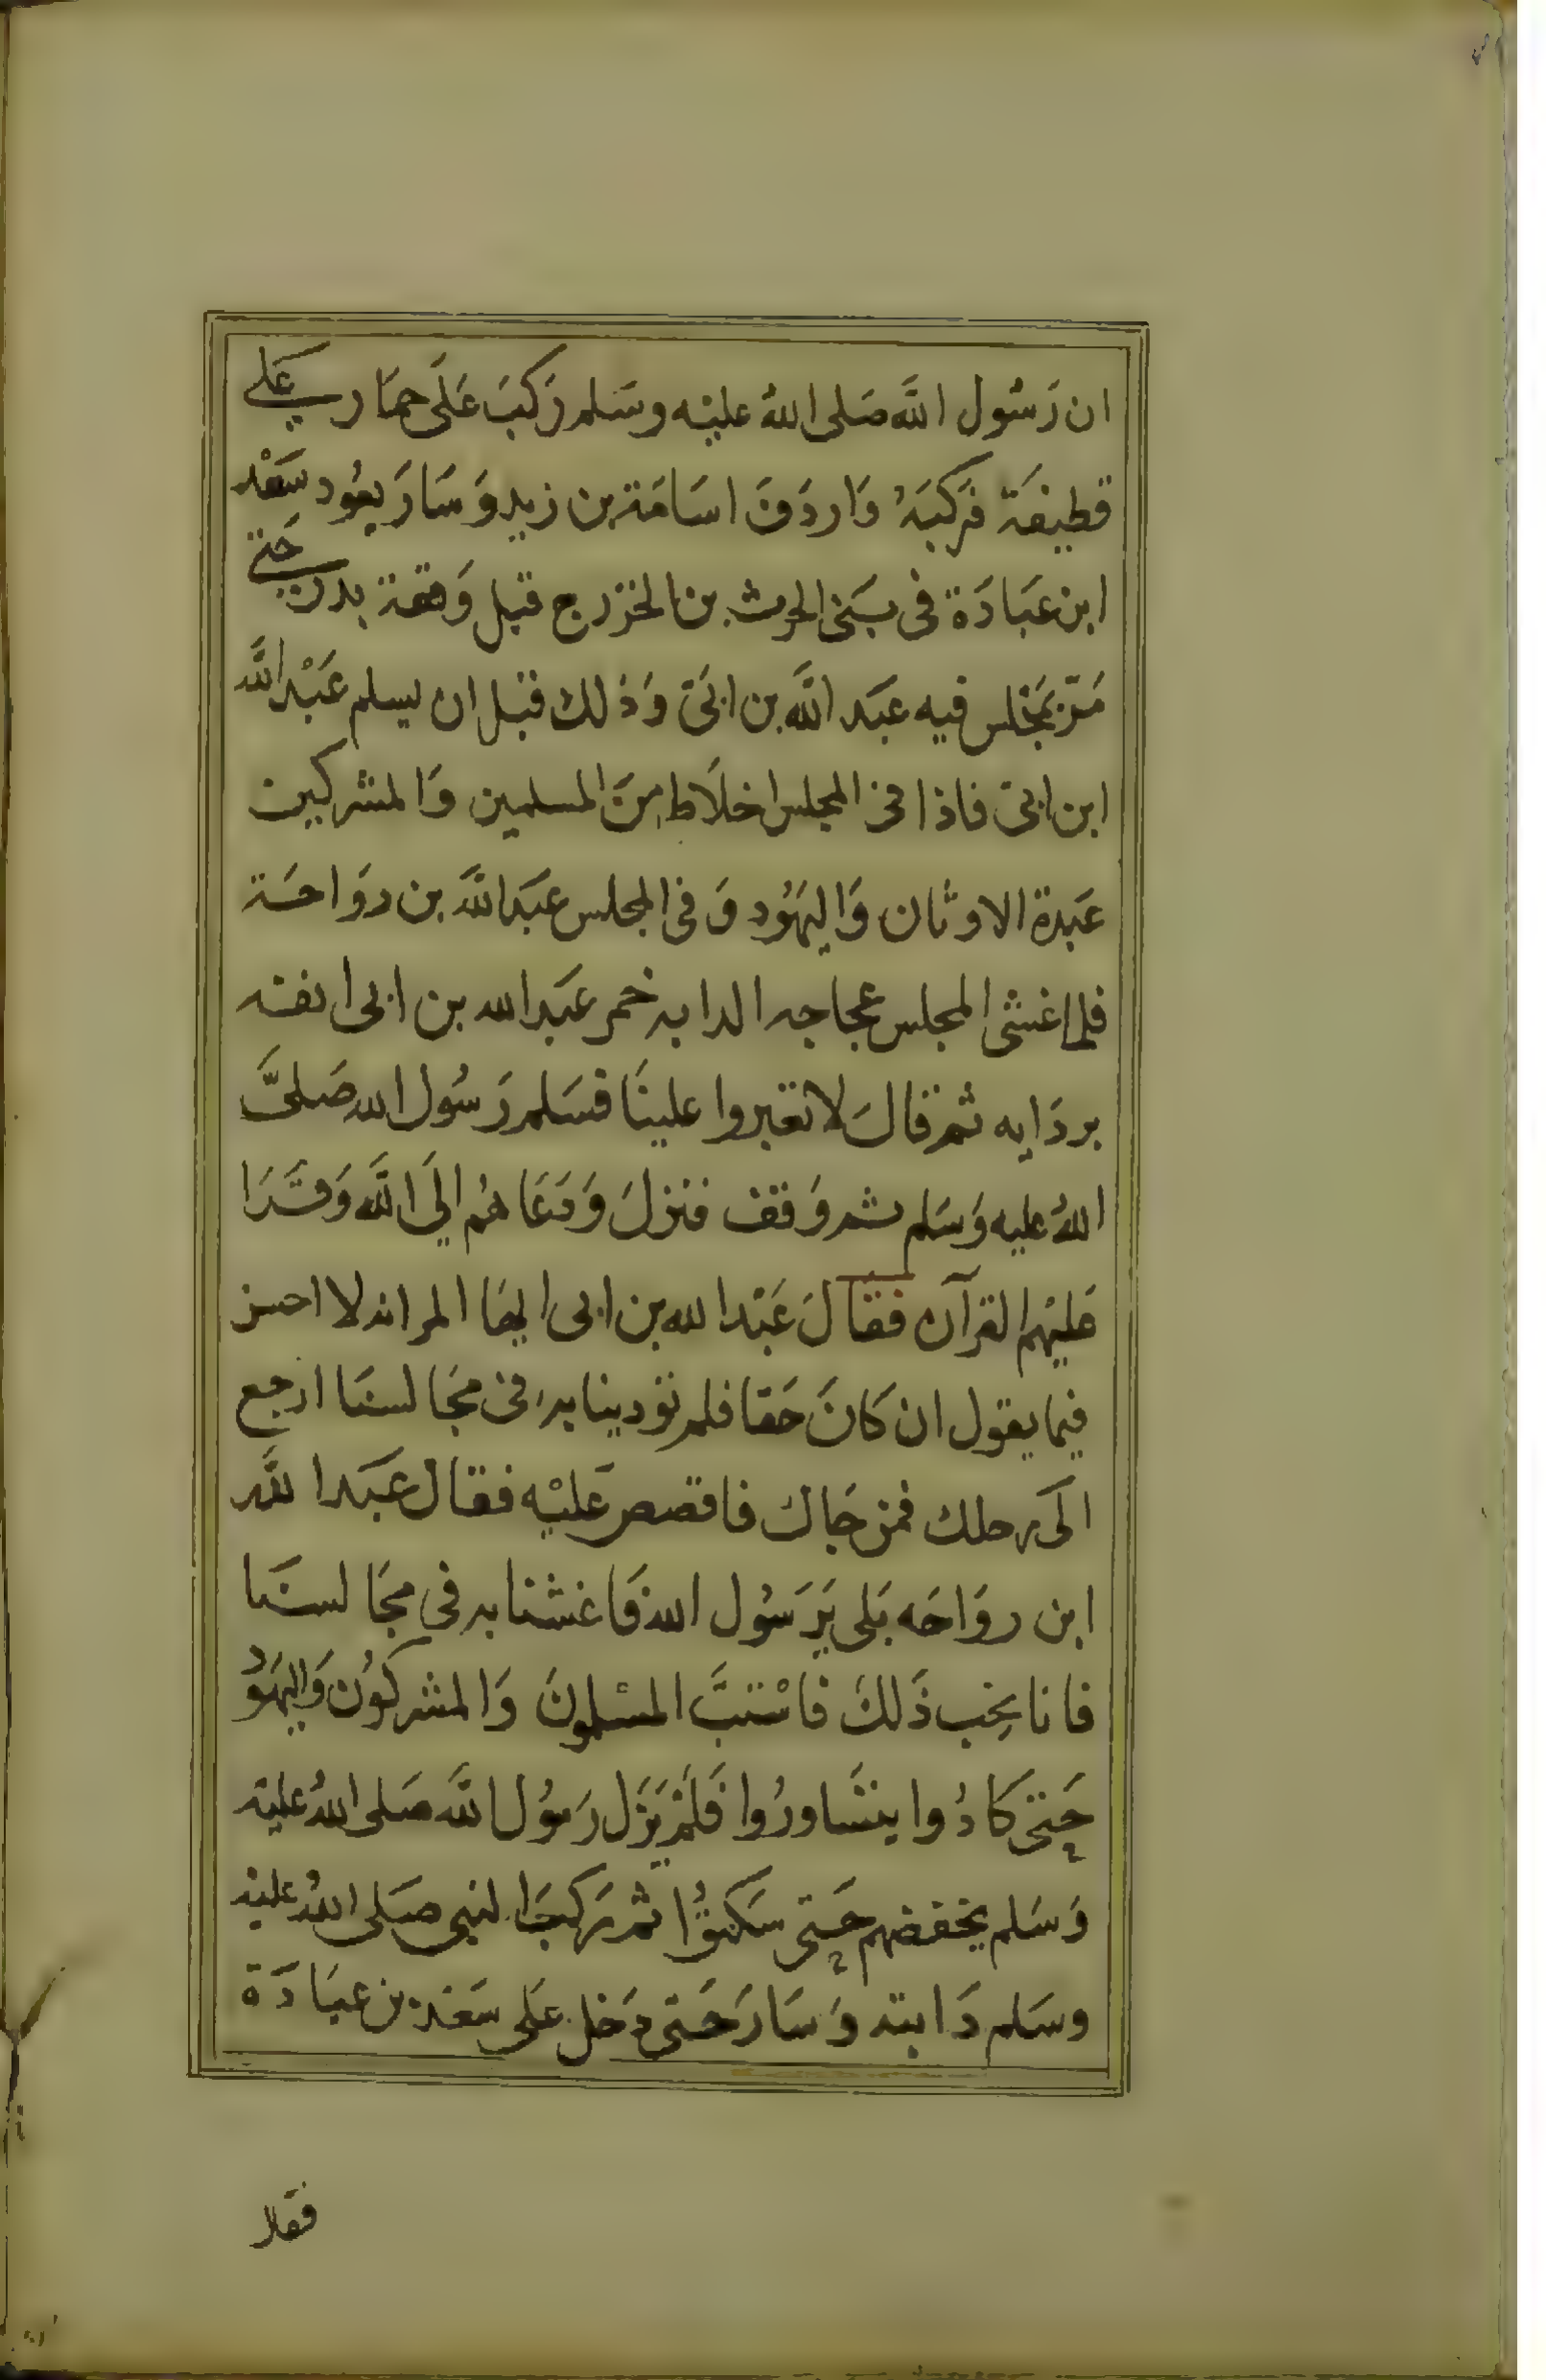 ان رَسُول اللَّه صَلى اللهُ عليْه وسَلم رَكبَ عَلَى حمَار عَلى
قطيفَة فرَكبَهُ وَاردَفَ اسَامَة بن زيد وَسَارَ يعُود سَعْد
ابن عبَادَة فى بَنى الحرث بن الخزرج قبل وَقعَة بدر حَتى
مَرّ بمَجْلس فيه عبَد اللَّه بن ابَى وَذلك قبل ان يسلم عَبْد اللَّه
ابن ابى فاذا فى المجلس اخلَاط مِنَ المسلمين وَالمشركين
عَبدة الاوثان وَاليَهُود وَفى المجلس عبَد اللَّه بن روَاحَة
فلما غشى المجلس عجاجه الدابه خمر عبَد الله بن ابى انفه
بردَايه ثم قالَ لا تغبروا علينَا فسَلم رَسُول الله صَلىَّ
اللهُ عليه وَسَلم ثم وَقف فنزلَ وَدَعَاهُم الَى اللَّه وَقَرَا
عَليْهم القرآن فقالَ عَبْد الله بن ابى ايهَا المرا نه لا احسن
فيما يقول ان كَانَ حَقا فلم توذينا به فى مجَالسنَا ارجع
الَى رحلك فمن جَاك فاقصص عَليْه فقال عبَد اللَّه
ابن روَاحَه بَلى يَرَسُول الله فَاغشنا به فى مجَالسنَا
فانا نحِب ذَلكَ فاسْتبَّ المسْلمونَ وَالمشركوُن وَاليَهُود
حَتى كادُوا يتثَاورُوا فَلَمْ يَزَل رَسُول اللَّه صَلى اللهُ عليْه
وَسَلم يخفضهم حَتى سَكنوُا ثم رَكبَ النبى صَلى اللهُ عليْه
وسَلم دَابته وَسَارَ حَتى دَخل عَلى سَعْد بن عبَادَة
فقال